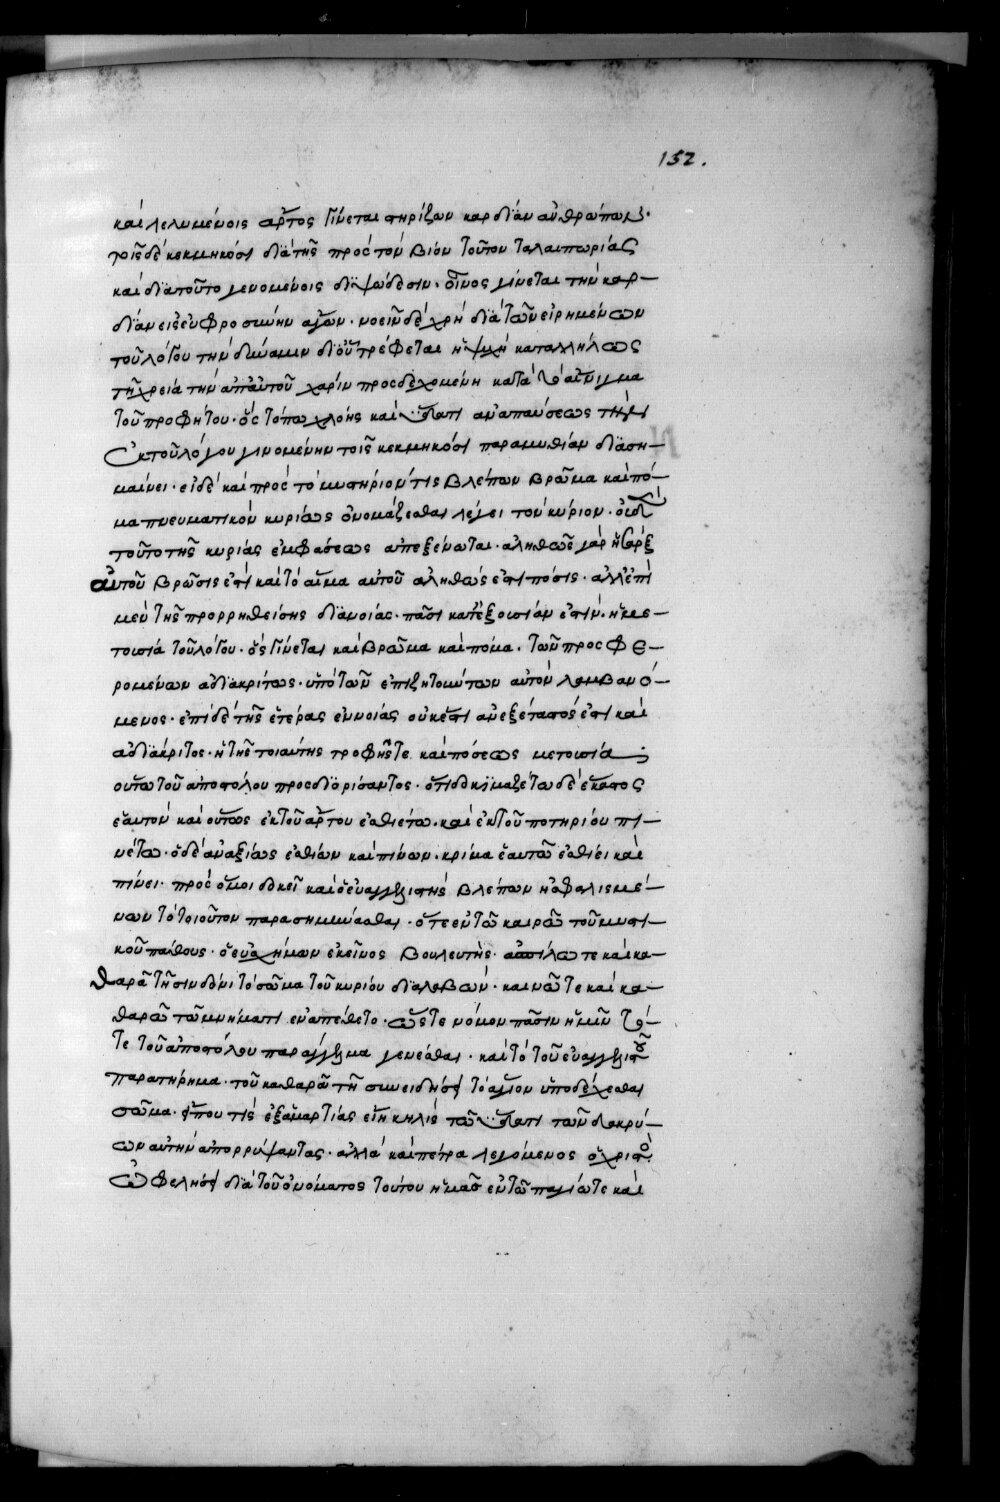 152.
καὶ λελυμένοις ἄρτος γίνεται στηρίζων καρδίαν ἀνθρώπου·
τοῖς δὲ κεκμηκόσι διὰ τῆς πρὸς τὸν βίον τοῦτον ταλαιπωρίας
καὶ διατοῦτο γενομένοις διψώδεσιν· οἶνος γίνεται τὴν καρ-
δίαν εἰς εὐφροσύνην ἄγων· νοεῖν δὲ χρὴ διὰ τῶν εἰρημένων
τοῦ λόγου τὴν δύναμιν δι' οὗ τρέφεται ἡ ψυχὴ καταλλήλως
τῆ χρεία τὴν ἀπ' αὐτοῦ χάριν προσδεχομένη κατὰ τὸ αἴνιγμα
τοῦ προφήτου· ὃς τόπω χλόης καὶ ὕδατι ἀναπαύσεως τὴν
ἐκ τοῦ λόγου γινομένην τοῖς κεκμηκόσι παραμυθίαν διαση-
μαίνει· εἰ δὲ καὶ πρὸς τὸ μυστήριόν τις βλέπων βρῶμα καὶ πό-
μα πνευματικὸν κυρίως ὀνομάζεσθαι λέγει τὸν κύριον· οὐδὲ
τοῦτο τῆς κυρίας ἐμφάσεως ἀπεξένωται· ἀληθῶς γὰρ ἡ σάρξ
αὐτοῦ βρῶσις ἐστὶ καὶ τὸ αἷμα αὐτοῦ ἀληθῶς ἐστὶ πόσις· ἀλλ' ἐπὶ
μὲν τῆς προρρηθείσης διανοίας· πᾶσι κατ' ἐξουσίαν ἐστὶν· ἡ με-
τουσία τοῦ λόγου· ὃς γίνεται καὶ βρῶμα καὶ πόμα· τῶν προσφε-
ρομένων ἀδιακρίτως· ὑπὸ τῶν ἐπιζητούντων αὐτὸν λαμβανό-
μενος· ἐπὶ δὲ τῆς ἑτέρας ἐννοίας οὐκέτι ἀνεξέταστός ἐστι καὶ
ἀδιάκριτος· ἡ τῆς τοιαύτης τροφῆς τε καὶ πόσεως μετουσία·
οὕτω τοῦ ἀποστόλου προσδιορίσαντος· ὅτι δοκιμαζέτω δὲ ἕκαστος
ἑαυτὸν καὶ οὕτως ἐκ τοῦ ἄρτου ἐσθιέτω· καὶ ἐκ τοῦ ποτηρίου πι-
νέτω· ὁ δὲ ἀναξίως ἐσθίων καὶ πίνων· κρίμα ἑαυτῶ ἐσθίει καὶ
πίνει· πρὸς ὅ μοι δοκεῖ καὶ ὁ εὐαγγελιστὴς βλέπων ἠσφαλισμέ-
νων τὸ τοιοῦτον παρασημήνασθαι· ὅτε ἐν τῶ καιρῶ τοῦ μυστι-
κοῦ πάθους· ὁ εὐσχήμων ἐκεῖνος βουλευτὴς· ἀσπίλω τε καὶ κα-
θαρᾶ τῆ σινδόνι τὸ σῶμα τοῦ κυρίου διαλαβών· καινῶ τε καὶ κα-
θαρῶ τῶ μνήματι ἐναπέθετο· ὥστε νόμον πᾶσιν ἡμῖν τό-
τε τοῦ ἀποστόλου παράγγελμα γενέσθαι· καὶ τὸ τοῦ εὐαγγελιστοῦ
παρατήρημα· τοῦ καθαρᾶ τῆ συνειδήσει τὸ ἅγιον ὑποδέχεσθαι
σῶμα· εἴπου τίς ἐξ ἁμαρτίας εἴη κηλὶς τῶ ὕδατι τῶν δακρύ-
ων αὐτὴν ἀπορρύψαντας· ἀλλὰ καὶ πέτρα λεγόμενος ὁ χριστὸς
ὠφελήσει διὰ τοῦ ὀνόματος τούτου ἡμᾶς ἐν τῶ παγίω τε καὶ